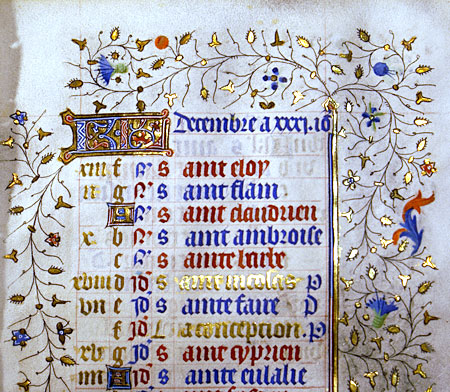 KL Decembre a xxxi. io
xiii f N' S aint eloy
ii g N' S aint flain
A N' S aint claudrien
x. b N' S aint ambroise
c N' S ainte barbe
xviii d id' S aint nicolas P
vii e id' S ainte faire D
f id' L a conception. P
xv g id' S aint cyprien
iiii A id' S ainte eulalie